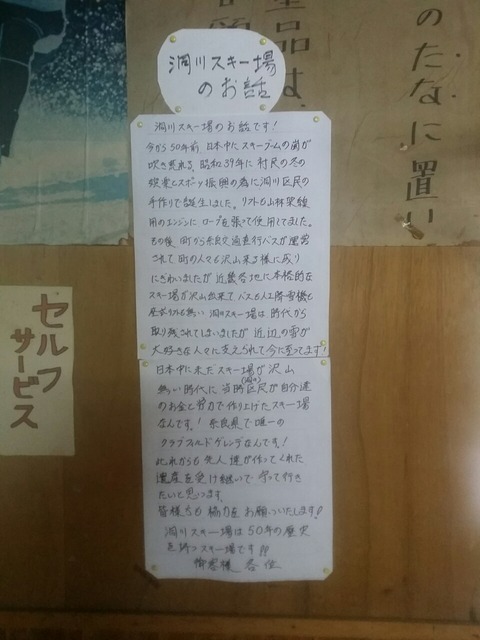 洞川スキー場
のお話
洞川スキー場のお話です!
今から50年前 日本中にスキーブームの嵐が
吹き荒れる 昭和39年に 村民の冬の
娯楽とスポーツ振興の為に洞川区民の
手作りで誕生しました。リフトも山林架線
用のエンジンに ロープを張って使用してました。
その後 町から奈良交通直行バスが運営
されて 町の人々も沢山来る様に成り
にぎわいましたが 近畿各地に本格的な
スキー場が沢山出来て バスも人工降雪機も
リフトも無い 洞川スキー場は 時代から
取り残されてしまいましたが 近辺の雪が
大好きな人々に支えられて今に至ってます!
日本中に未だスキー場が 沢山
無い時代に 当時区民が自分達
(洞川)
のお金と労力で作り上げたスキー場
なんです! 奈良県で唯一の
クラブフィルドゲレンデなんです!
此れからも先人達が作ってくれた
遺産を受け継いで 守って行き
たいと思ってます。
皆様方も協力をお願いいたします!
洞川スキー場は50年の歴史
を持つスキー場です!!
御客様 各位
セルフ
サービス
のたなに置い
産品は、